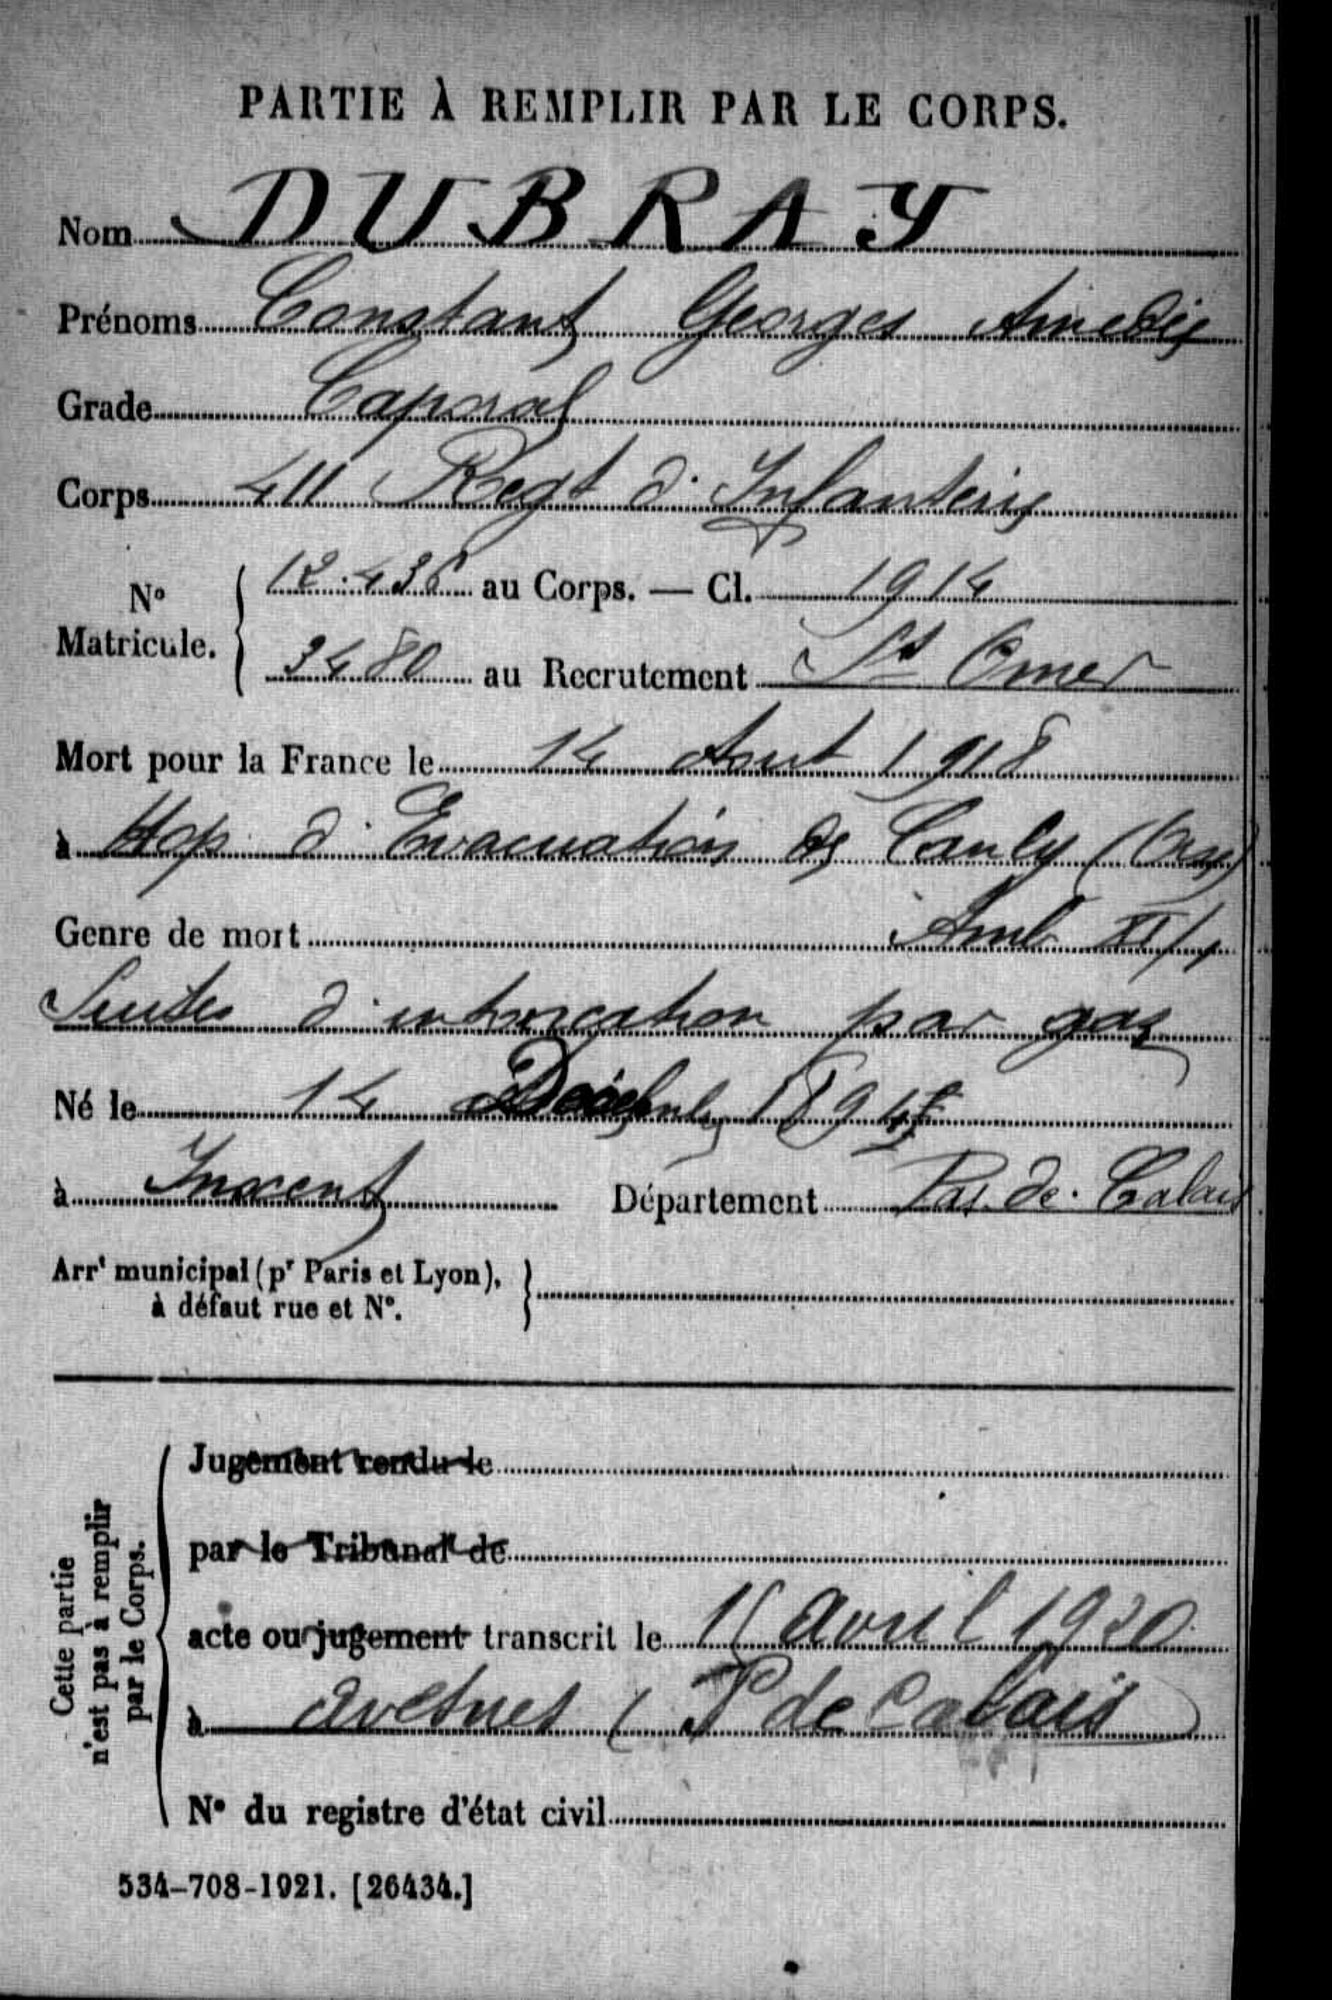 PARTIE À REMPLIR PAR LE CORPS.
Nom DUBRAY
Prénoms Constant Georges Amédée
Grade Caporal
Corps 411 Regt d'Infanterie
N° Matricule. { 12.436 au Corps. — Cl. 1914
3480 au Recrutement St Omer
Mort pour la France le 14 Aout 1918
à Hop. d'Evacuation de Canly (Oise)
Genre de mort Amb
Suites d'intoxication par gaz
Né le 14
à Inxent Département Pas. de. Calais
Arrt municipal (pr Paris et Lyon), à défaut rue et N°. }
Cette partie n'est pas à remplir par le Corps.
Jugement rendu le
par le Tribunal de
acte ou jugement transcrit le Avril 1920
à Avesnes (P de Calais)
N° du registre d'état civil
534-708-1921. [26434.]